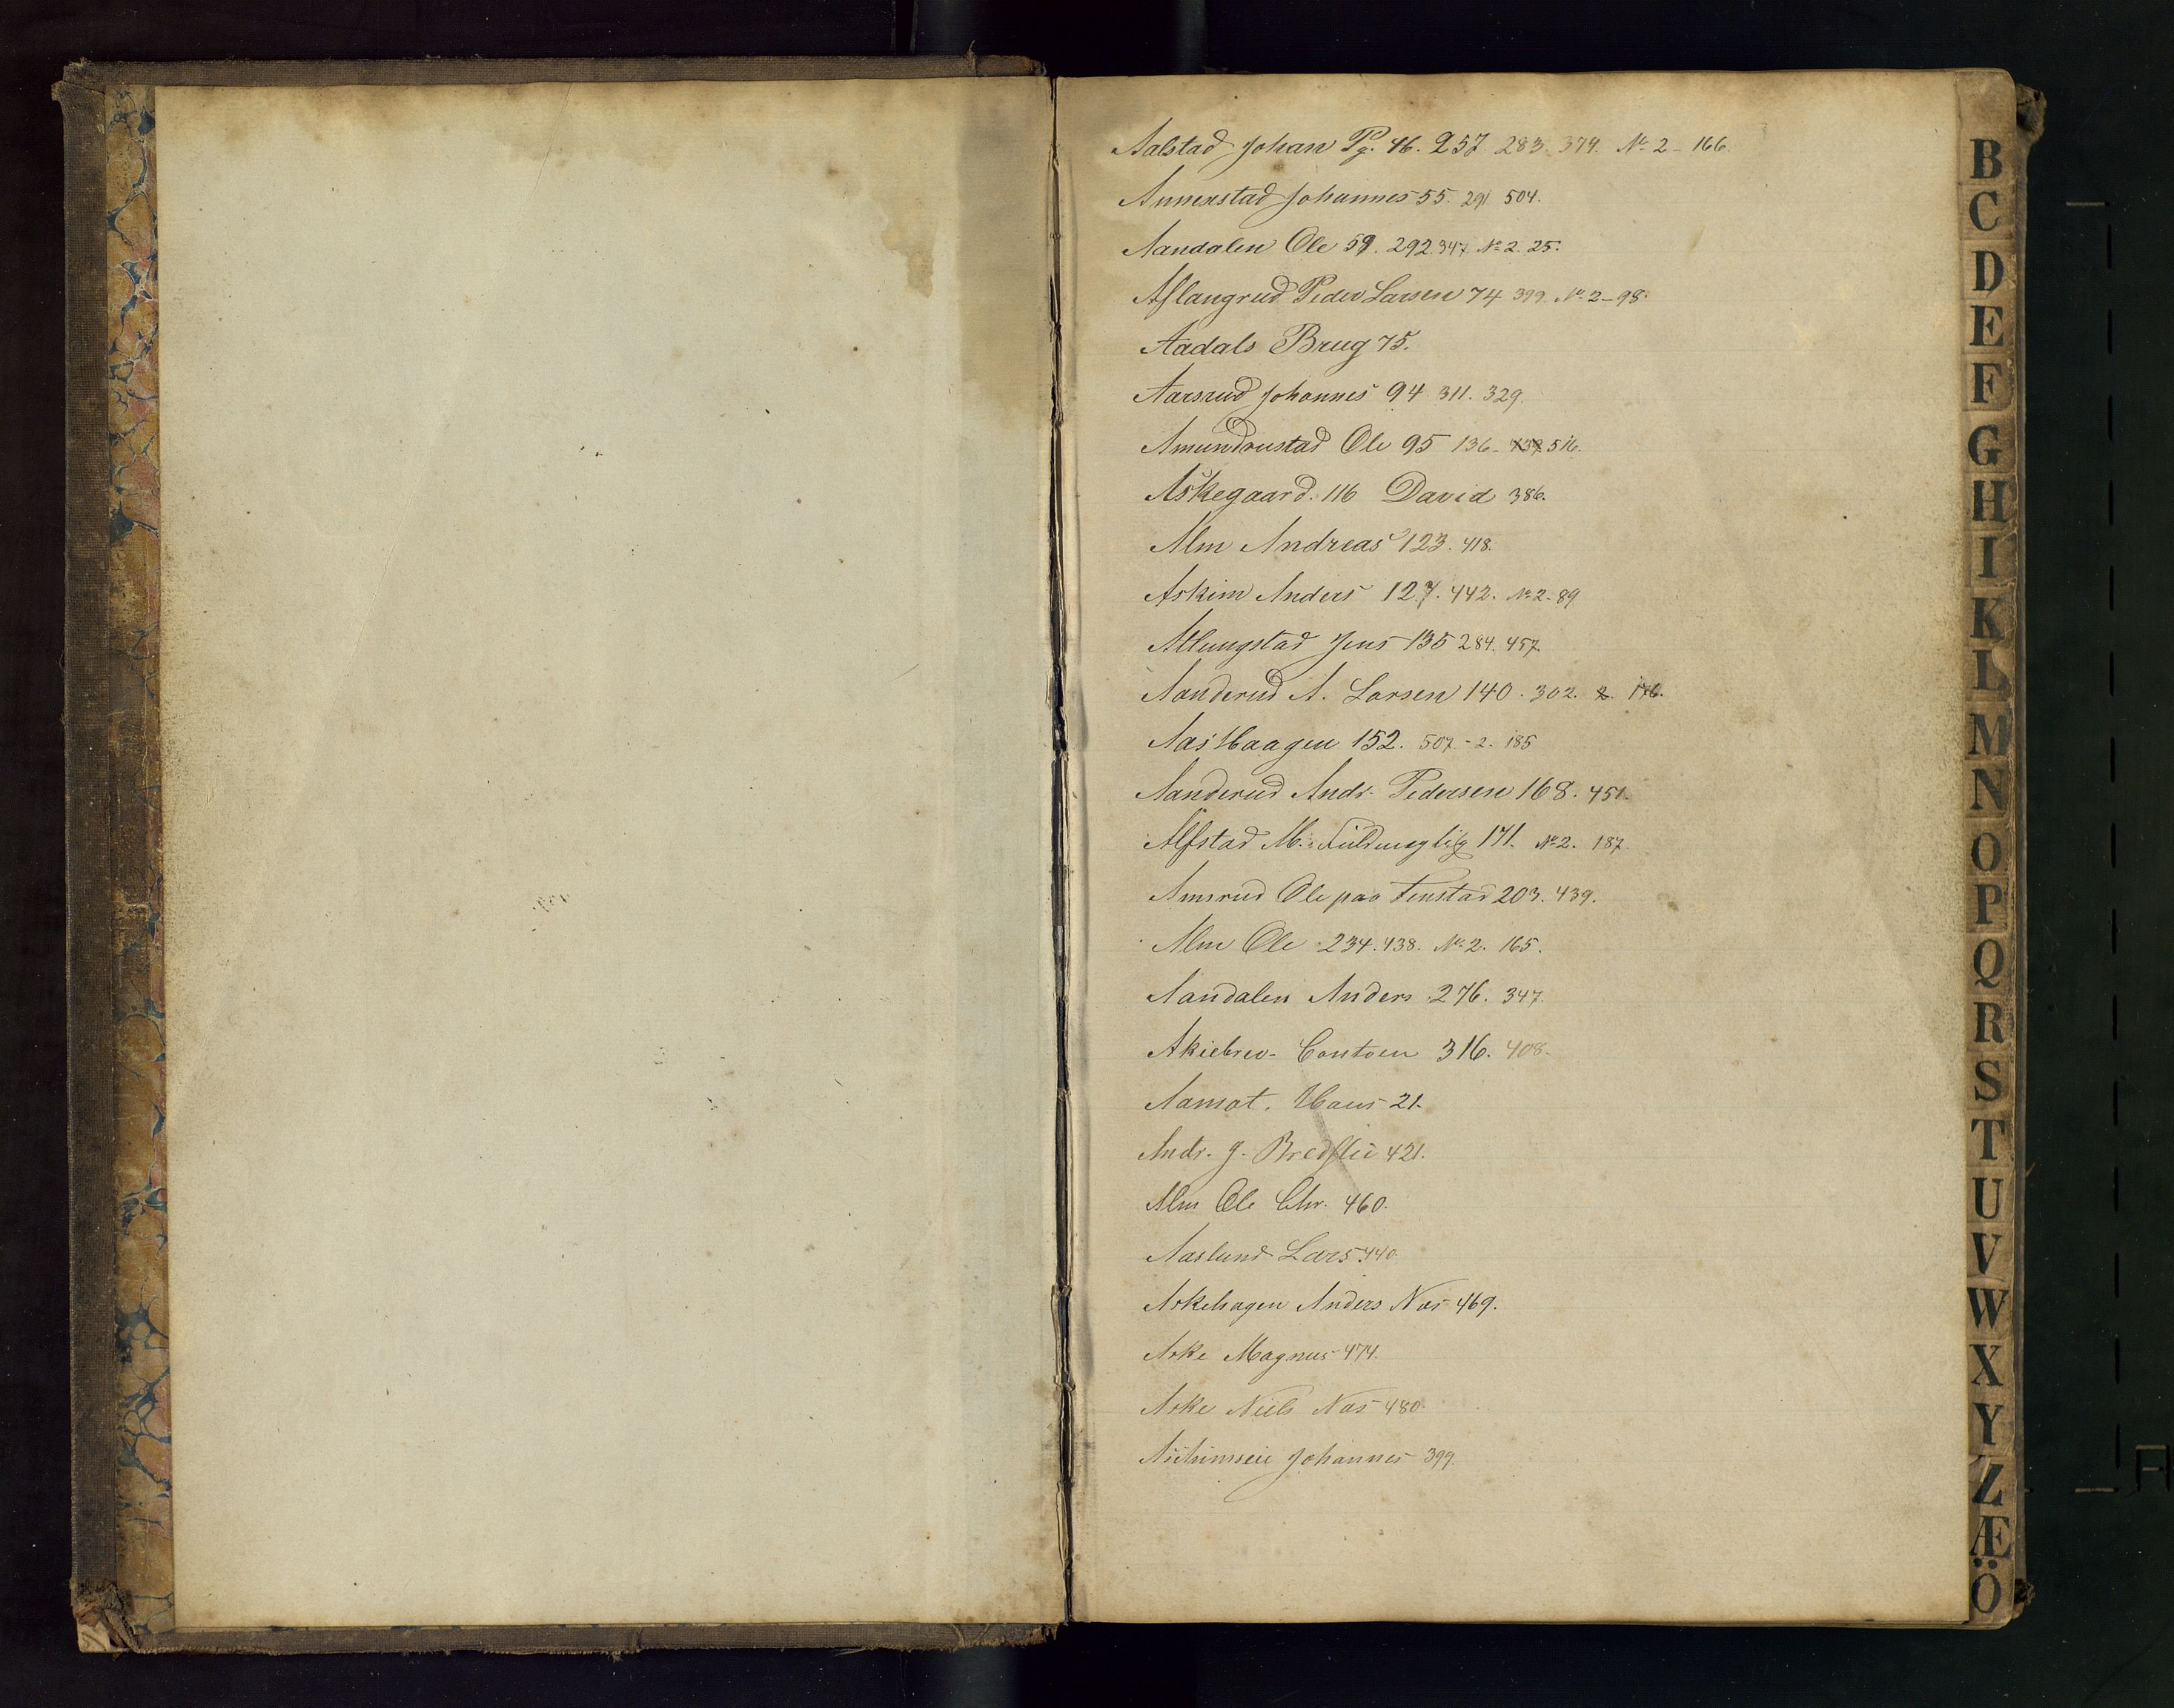 Aalstad Johan Pg. 46. 257. 283. 379. No 2 - 166.
Annerstad Johannes 55. 291. 504.
Aandalen Ole 59. 292. 347. No 2. 25.
Aslangrud Peder Larsen 74 399. No 2 - 98.
Aadals Brug 75.
Aarsrud Johannes 94 311. 329.
Amundrustad Ole 95 136 - 516.
Askegaard. 116 David 386.
Alm Andreas 123. 418.
Askim Anders 127. 442. No 2 - 89
Atlungstad Jens 135 284. 457.
Aanderud A. Larsen 140. 302. 2. 176.
Aas Haagen 152. 507 - 2. 185
Aanderud Andr. Pedersen 168. 451.
Alfstad M. Fuldmægtig 171. No 2. 187.
Amsrud Ole paa Tenstad 203. 439.
Alm Ole 234. 438. No 2. 165.
Aandalen Anders 276. 347.
Akiebrev- Contoen 316. 408.
Aamot. Hans 21.
Andr. J. Bredslie 421.
Alm Ole Chr. 460.
Aaslund Lars 440.
Askehagen Anders Næs 469.
Aske Magnus 474.
Aske Niels Næs 480.
Johannes 399.
B
C
D
E
F
G
H
I
K
L
M
N
O
P
Q
R
S
T
U
V
W
X
Y
Z
Æ
Ö